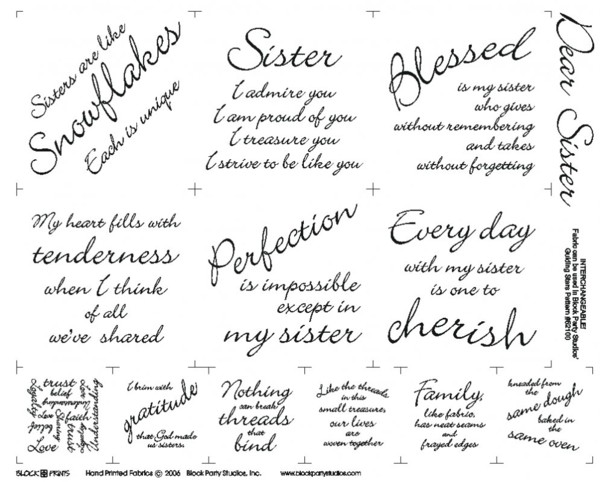 Sisters are like
Snowflakes
Each is unique
Sister
I admire you
I am proud of you
I treasure you
I strive to be like you
Blessed
is my sister
who gives
without remembering
and takes
without forgetting
Dear Sister
My heart fills with
tenderness
when I think
of all
we've shared
Perfection
is impossible
except in
my sister
Every day
with my sister
is one to
cherish
INTERCHANGEABLE!
Fabric can be used in Block Party Studios'
Guiding Stars Pattern #62100
trust
belief
faith
Love
Understanding
I brim with
gratitude
that God made
us sisters.
Nothing
can break
threads
that
bind
Like the threads
in this
small treasure,
our lives
are
woven together
Family,
like fabric,
has neat seams
and
frayed edges
kneaded from
the
same dough
baked in
the
same oven
BLOCK PRINTS Hand Printed Fabrics © 2006 Block Party Studios, Inc. www.blockpartystudios.com